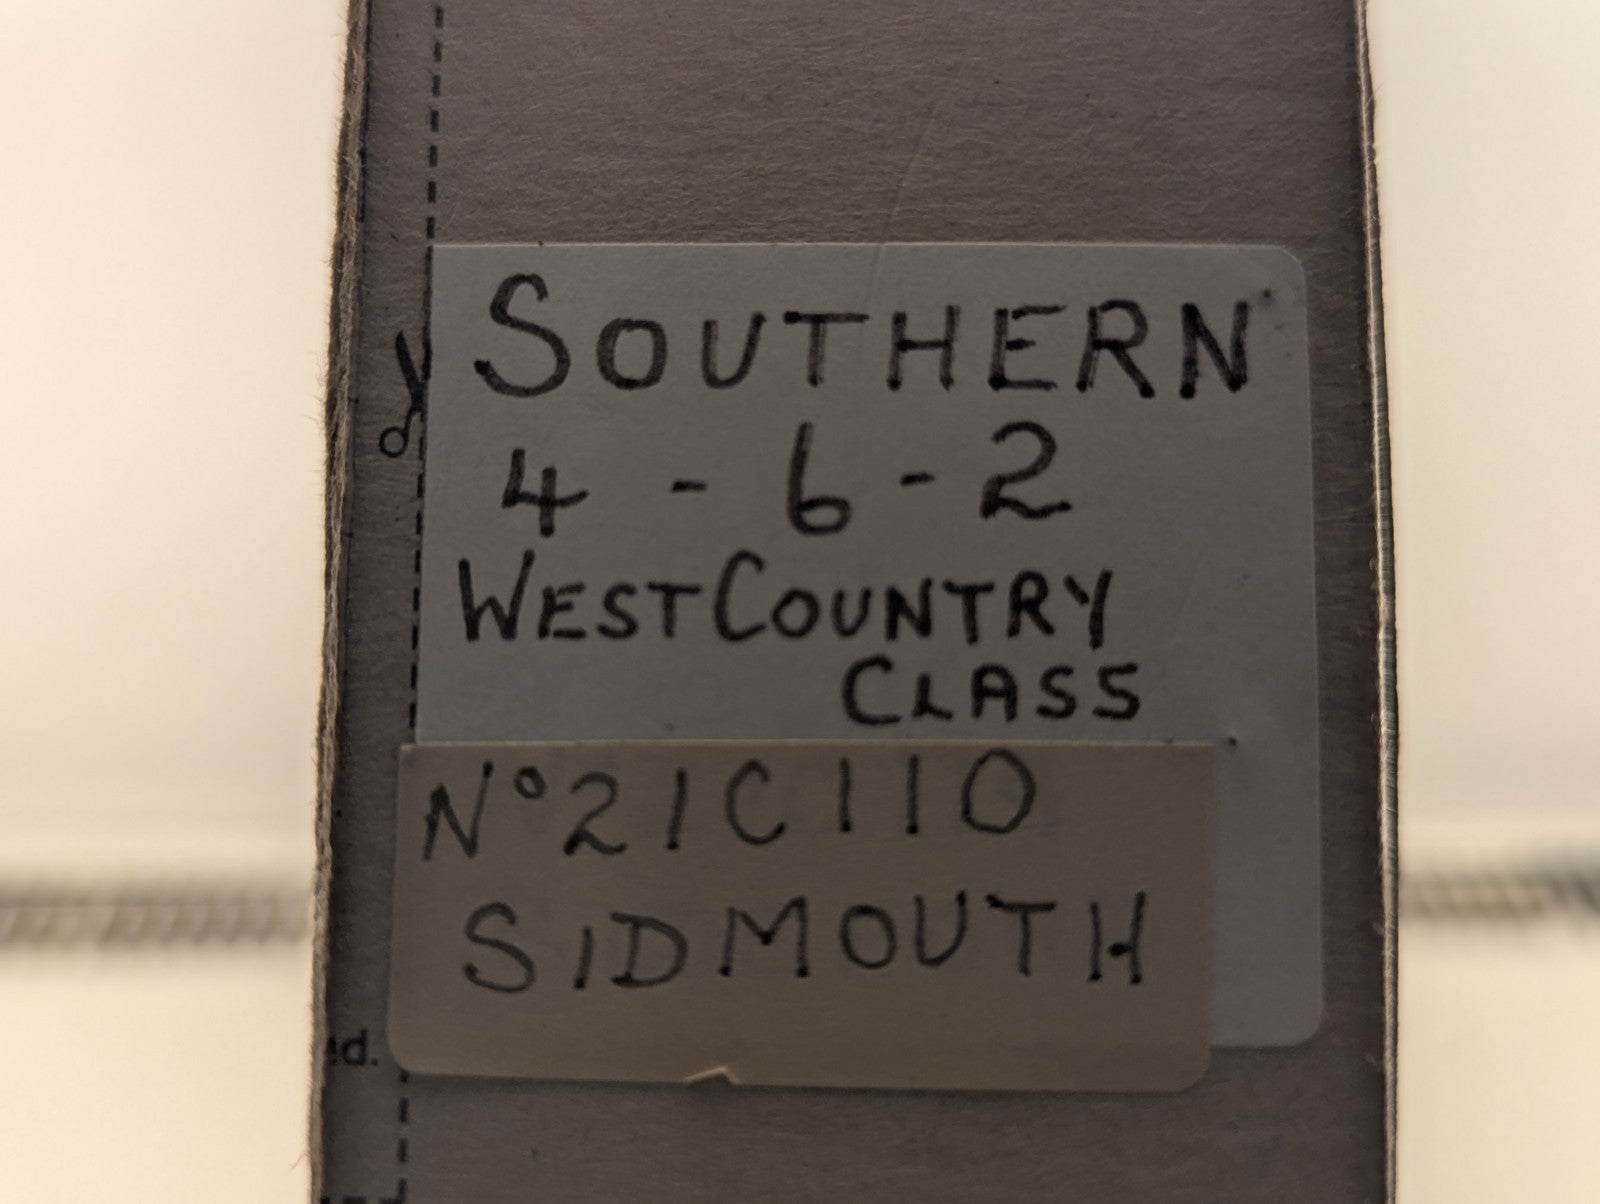 SOUTHERN
4 - 6 - 2
WEST COUNTRY
CLASS
Nº 21C110
SIDMOUTH
d.